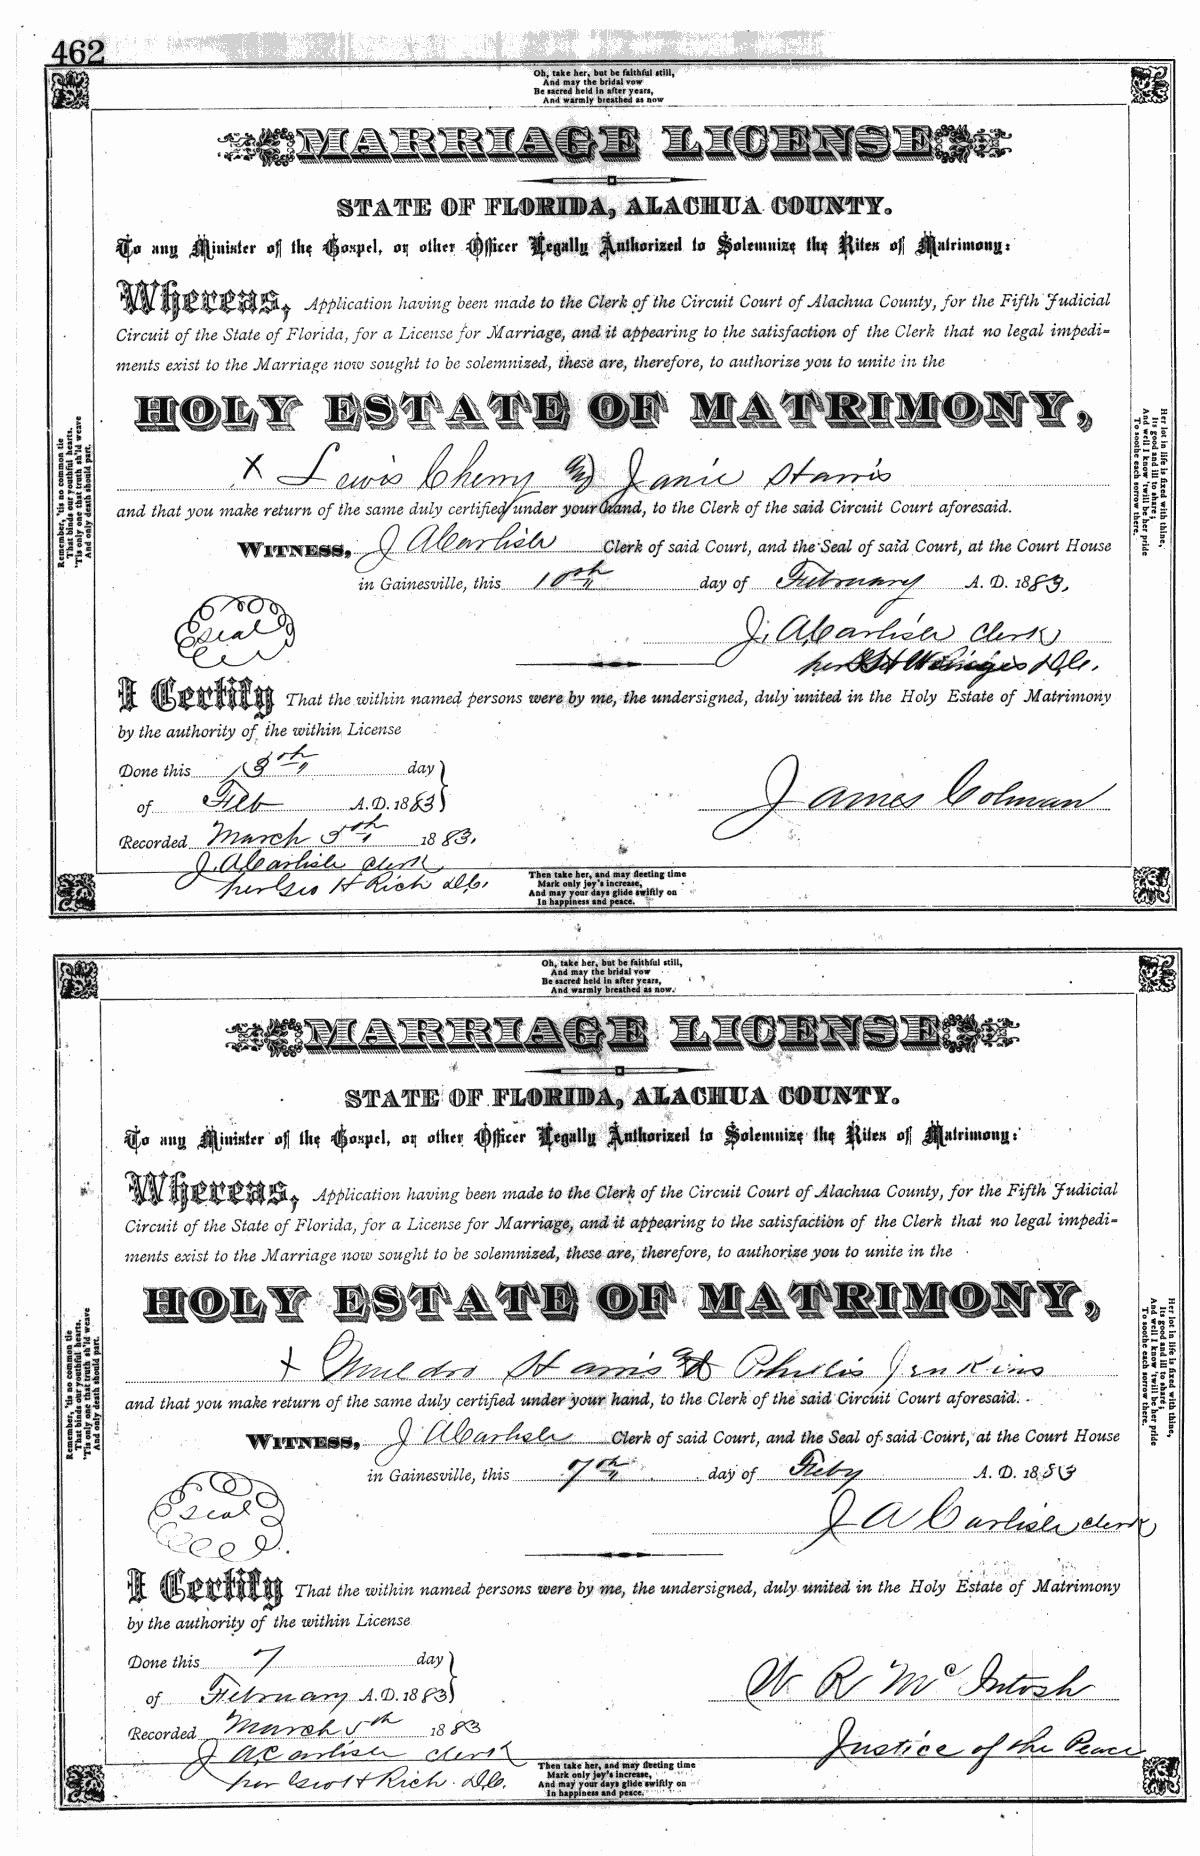 462
Oh, take her, but be faithful still,
And may the bridal vow
Be sacred held in after years,
And warmly breathed as now
MARRIAGE LICENSE
STATE OF FLORIDA, ALACHUA COUNTY.
To any Minister of the Gospel, or other Officer Legally Authorized to Solemnize the Rites of Matrimony:
Whereas, Application having been made to the Clerk of the Circuit Court of Alachua County, for the Fifth Judicial
Circuit of the State of Florida, for a License for Marriage, and it appearing to the satisfaction of the Clerk that no legal impedi=
ments exist to the Marriage now sought to be solemnized, these are, therefore, to authorize you to unite in the
HOLY ESTATE OF MATRIMONY,
x Lewis Cherry and Janie Harris
and that you make return of the same duly certified under your hand, to the Clerk of the said Circuit Court aforesaid.
WITNESS, J A Carlisle Clerk of said Court, and the Seal of said Court, at the Court House
in Gainesville, this 10th day of February A. D. 1883.
Seal
J. A Carlisle Clerk
per D.C.
I Certify That the within named persons were by me, the undersigned, duly united in the Holy Estate of Matrimony
by the authority of the within License
Done this 13th day
of Feb A. D. 1883
James Colman
Recorded March 5th 1883.
J. A Carlisle Clerk
per Geo H Rich D.C.
Remember, 'tis no common tie
That binds our youthful hearts,
'Tis only one that truth sh'ld weave
And only death should part.
Her lot in life is fixed with thine,
Its good and ill to share;
And well I know 'twill be her pride
To soothe each sorrow there.
Then take her, and may fleeting time
Mark only joy's increase,
And may your days glide swiftly on
In happiness and peace.
Oh, take her, but be faithful still,
And may the bridal vow
Be sacred held in after years,
And warmly breathed as now.
MARRIAGE LICENSE
STATE OF FLORIDA, ALACHUA COUNTY.
To any Minister of the Gospel, or other Officer Legally Authorized to Solemnize the Rites of Matrimony:
Whereas, Application having been made to the Clerk of the Circuit Court of Alachua County, for the Fifth Judicial
Circuit of the State of Florida, for a License for Marriage, and it appearing to the satisfaction of the Clerk that no legal impedi=
ments exist to the Marriage now sought to be solemnized, these are, therefore, to authorize you to unite in the
HOLY ESTATE OF MATRIMONY,
x Muldro Harris and Phillis Jenkins
and that you make return of the same duly certified under your hand, to the Clerk of the said Circuit Court aforesaid.
WITNESS, J A Carlisle Clerk of said Court, and the Seal of said Court, at the Court House
in Gainesville, this 7th day of Feby A. D. 1883
Seal
J A Carlisle Clerk
I Certify That the within named persons were by me, the undersigned, duly united in the Holy Estate of Matrimony
by the authority of the within License
Done this 7 day
of February A. D. 1883
W R McIntosh
Recorded March 5th 1883
Justice of the Peace
J A Carlisle Clerk
per Geo H Rich D.C.
Remember, 'tis no common tie
That binds our youthful hearts,
'Tis only one that truth sh'ld weave
And only death should part.
Her lot in life is fixed with thine,
Its good and ill to share;
And well I know 'twill be her pride
To soothe each sorrow there.
Then take her, and may fleeting time
Mark only joy's increase,
And may your days glide swiftly on
In happiness and peace.